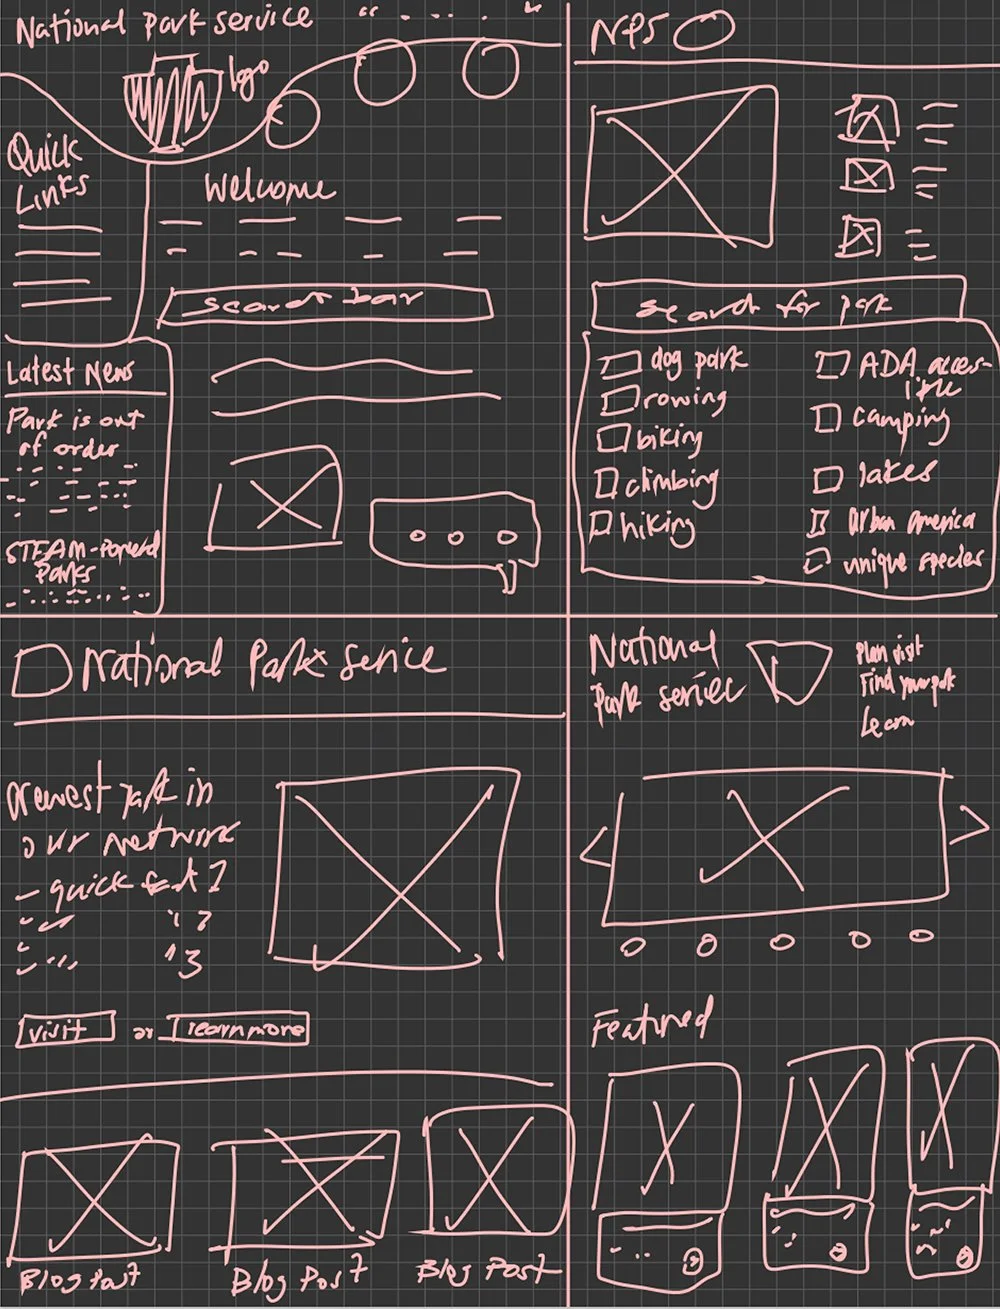 National Park service " - . . . . "
logo
Quick
Links
Welcome
search bar
Latest News
Park is out
of order
STEAM-Powered
Parks
NPS
search for park
dog park
rowing
biking
climbing
hiking
ADA acces-
ible
camping
lakes
Urban America
unique species
National Park Service
newest park in
our network
- quick fact 1
" 2
" 3
visit or learn more
Blog Post
Blog Post
Blog Post
National
Park service
Plan visit
Find your park
Learn
Featured